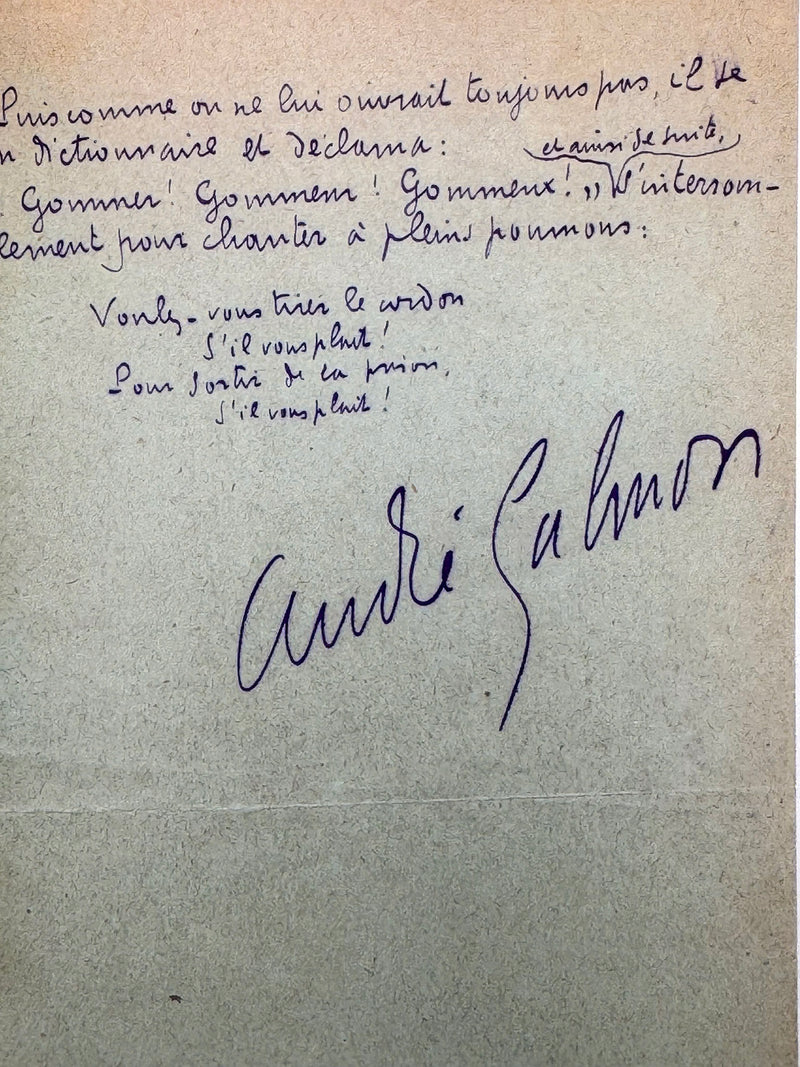 Puis comme on ne lui ouvrait toujours pas, il se
n dictionnaire et déclama :
et ainsi de suite,
Gommer ! Gommeur ! Gommeux ! „ S'interrom-
lement pour chanter à pleins poumons :
Voulez-vous tirer le cordon
S'il vous plait !
Pour sortir de la prison,
S'il vous plait !
André Salmon